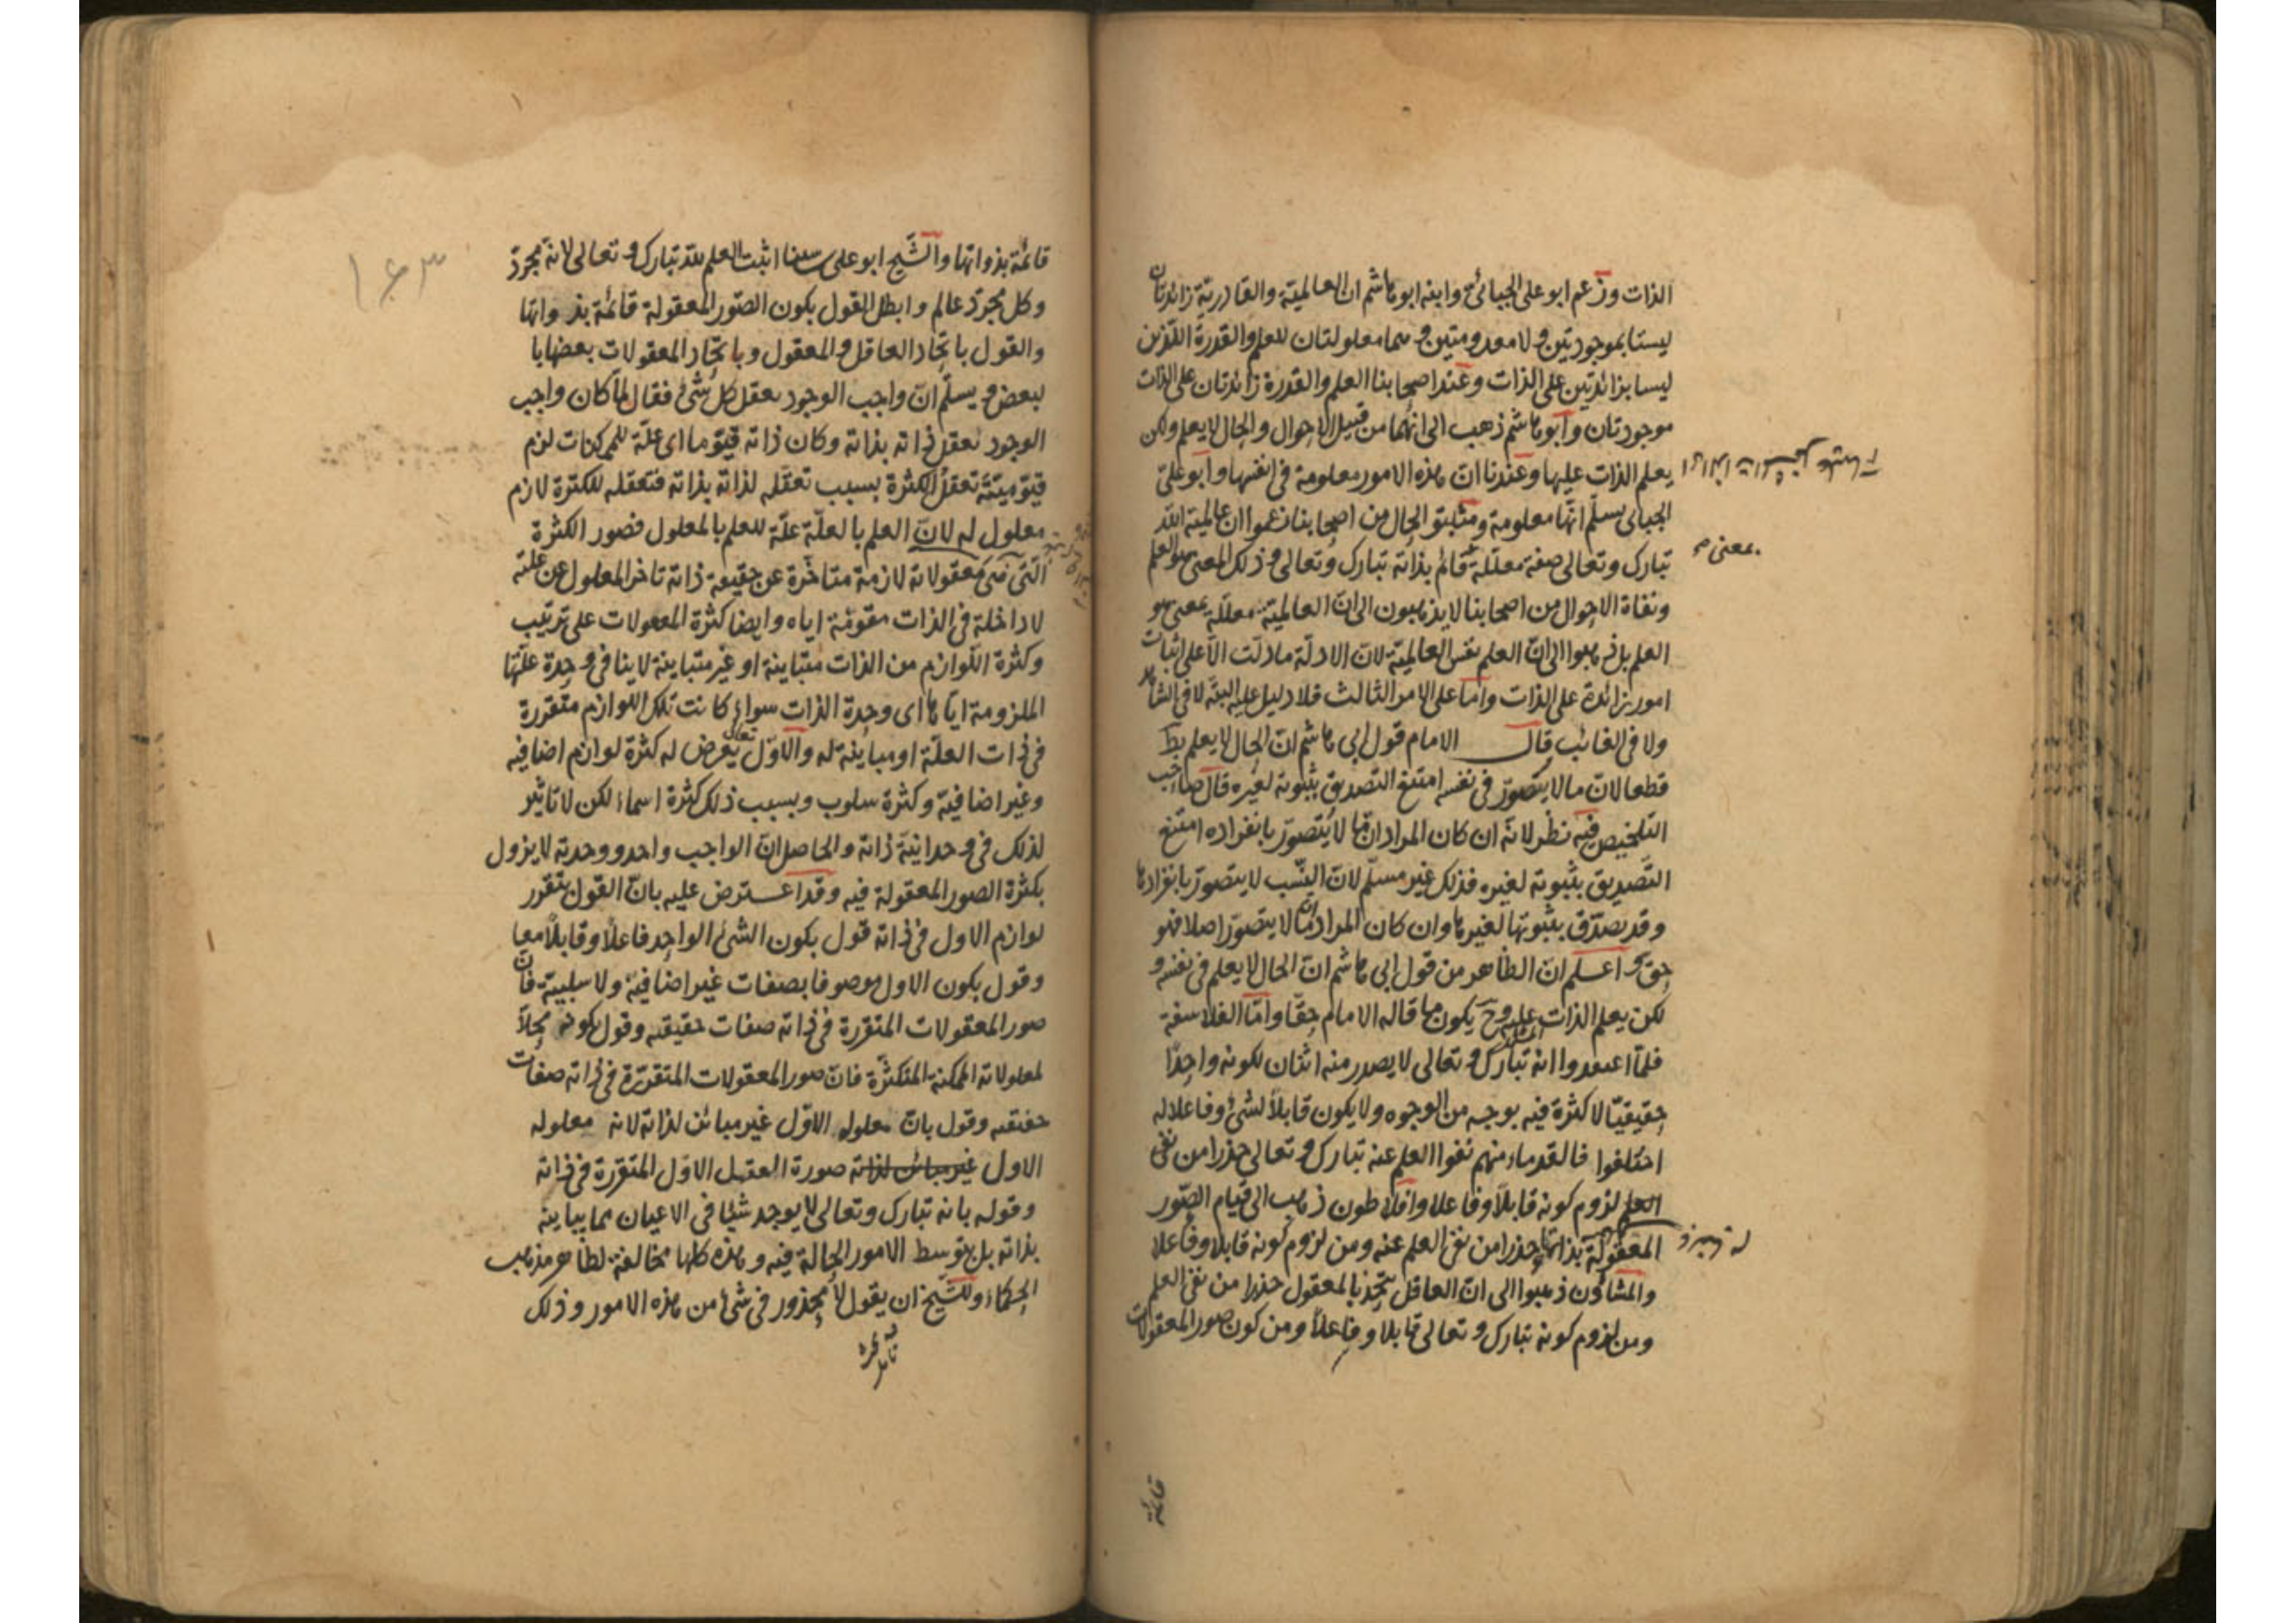 الذات وزعم ابو على الجبائى وابنه ابو هاشم ان العالمية والقادرية زائدتان
ليستا بموجودتين ولا معدومتين وهما معلولتان للعلم والقدرة اللذين
ليسا بزائدتين على الذات وعند اصحابنا العلم والقدرة زائدتان على الذات
موجودتان وابو هاشم ذهب الى انهما من قبيل الاحوال والحال لا يعلم ولكن
يعلم الذات عليها وعندنا ان هذه الامور معلومة فى انفسها وابو على
الجبائى يسلم انها معلومة ومثبتو الحال من اصحابنا زعموا ان عالمية الله
تبارك وتعالى صفة معللة قائم بذاته تبارك وتعالى وذلك المعنى هو العلم
بمعنى
ونفاة الاحوال من اصحابنا لا يذهبون الى ان العالمية معللة بمعنى هو
العلم بل ذهبوا الى ان العلم نفس العالمية لان الادلة ما دلت الا على اثبات
امور زائدة على الذات واما على الامر الثالث فلا دليل عليه البتة لا فى الشاهد
ولا فى الغائب قال الامام قول ابى هاشم ان الحال لا يعلم بط
قطعا لان ما لا يتصور فى نفسه امتنع التصديق بثبوته لغيره قال صاحب
التلخيص فيه نظر لانه ان كان المراد ان ما لا يتصور بانفراده امتنع
التصديق بثبوته لغيره فذلك غير مسلم لان النسب لا يتصور بانفرادها
وقد يصدق بثبوتها لغيرها وان كان المراد ان ما لا يتصور اصلا فهو
حق واعلم ان الظاهر من قول ابى هاشم ان الحال لا يعلم فى نفسه و
لكن يعلم الذات عليه وح يكون ما قاله الامام حقا واما الفلاسفة
فلما اعتقدوا انه تبارك وتعالى لا يصدر منه اثنان لكونه واحدا
حقيقيا لا كثرة فيه بوجه من الوجوه ولا يكون قابلا لشئ وفاعلا له
اختلفوا فالقدماء منهم نفوا العلم عنه تبارك وتعالى حذرا من نفى
العلم لزوم كونه قابلا وفاعلا وافلاطون ذهب الى قيام الصور
المعقولة بذاتها حذرا من نفى العلم عنه ومن لزوم كونه قابلا وفاعلا
والمشاؤن ذهبوا الى ان العاقل يتحد بالمعقول حذرا من نفى العلم
ومن لزوم كونه تبارك وتعالى قابلا وفاعلا ومن كون صور المعقولات
قائمة
١٦٣
قائمة بذواتها والشيخ ابو على سينا اثبت العلم لله تبارك وتعالى لانه مجرد
وكل مجرد عالم وابطل القول بكون الصور المعقولة قائمة بذواتها
والقول باتحاد العاقل والمعقول وباتحاد المعقولات بعضها با
لبعض ويسلم ان واجب الوجود يعقل كل شئ فقال لما كان واجب
الوجود يعقل ذاته بذاته وكان ذاته قيوما اى علة للممكنات لزم
قيوميته تعقل الكثرة بسبب تعقله لذاته بذاته فتعقله للكثرة لازم
معلول له لان العلم بالعلة علة للعلم بالمعلول فصور الكثرة
التى هى معقولاته لازمة متاخرة عن حقيقة ذاته تاخر المعلول عن علته
لا داخلة فى الذات مقومة اياه وايضا كثرة المعقولات على ترتيب
وكثرة اللوازم من الذات متباينة او غير متباينة لا ينافى وحدة علتها
الملزومة اياها اى وحدة الذات سواء كانت تلك اللوازم متقررة
فى ذات العلة او مباينة له والاول تعالى يعرض له كثرة لوازم اضافيه
وغير اضافية وكثرة سلوب وبسبب ذلك كثرة اسماء لكن لا تاثير
لذلك فى وحدانية ذاته والحاصل ان الواجب واحد ووحدته لا يزول
بكثرة الصور المعقولة فيه وقد اعترض عليه بان القول بتقرر
لوازم الاول فى ذاته قول بكون الشئ الواحد فاعلا وقابلا معا
وقول بكون الاول موصوفا بصفات غير اضافية ولا سلبية فان
صور المعقولات المتقررة فى ذاته صفات حقيقيه وقول بكونه محلا
لمعلولاته الممكنة المتكثرة فان صور المعقولات المتقررة فى ذاته صفات
حقيقيه وقول بان معلوله الاول غير مبائن لذاته لانه معلوله
الاول غير مبائن لذاته صورة العقل الاول المتقررة فى ذاته
وقوله بانه تبارك وتعالى لا يوجد شيئا فى الاعيان مما يباينه
بذاته بل بتوسط الامور الحالة فيه وهذه كلها مخالفة لظاهر مذهب
الحكماء وللشيخ ان يقول لا محذور فى شئ من هذه الامور وذلك